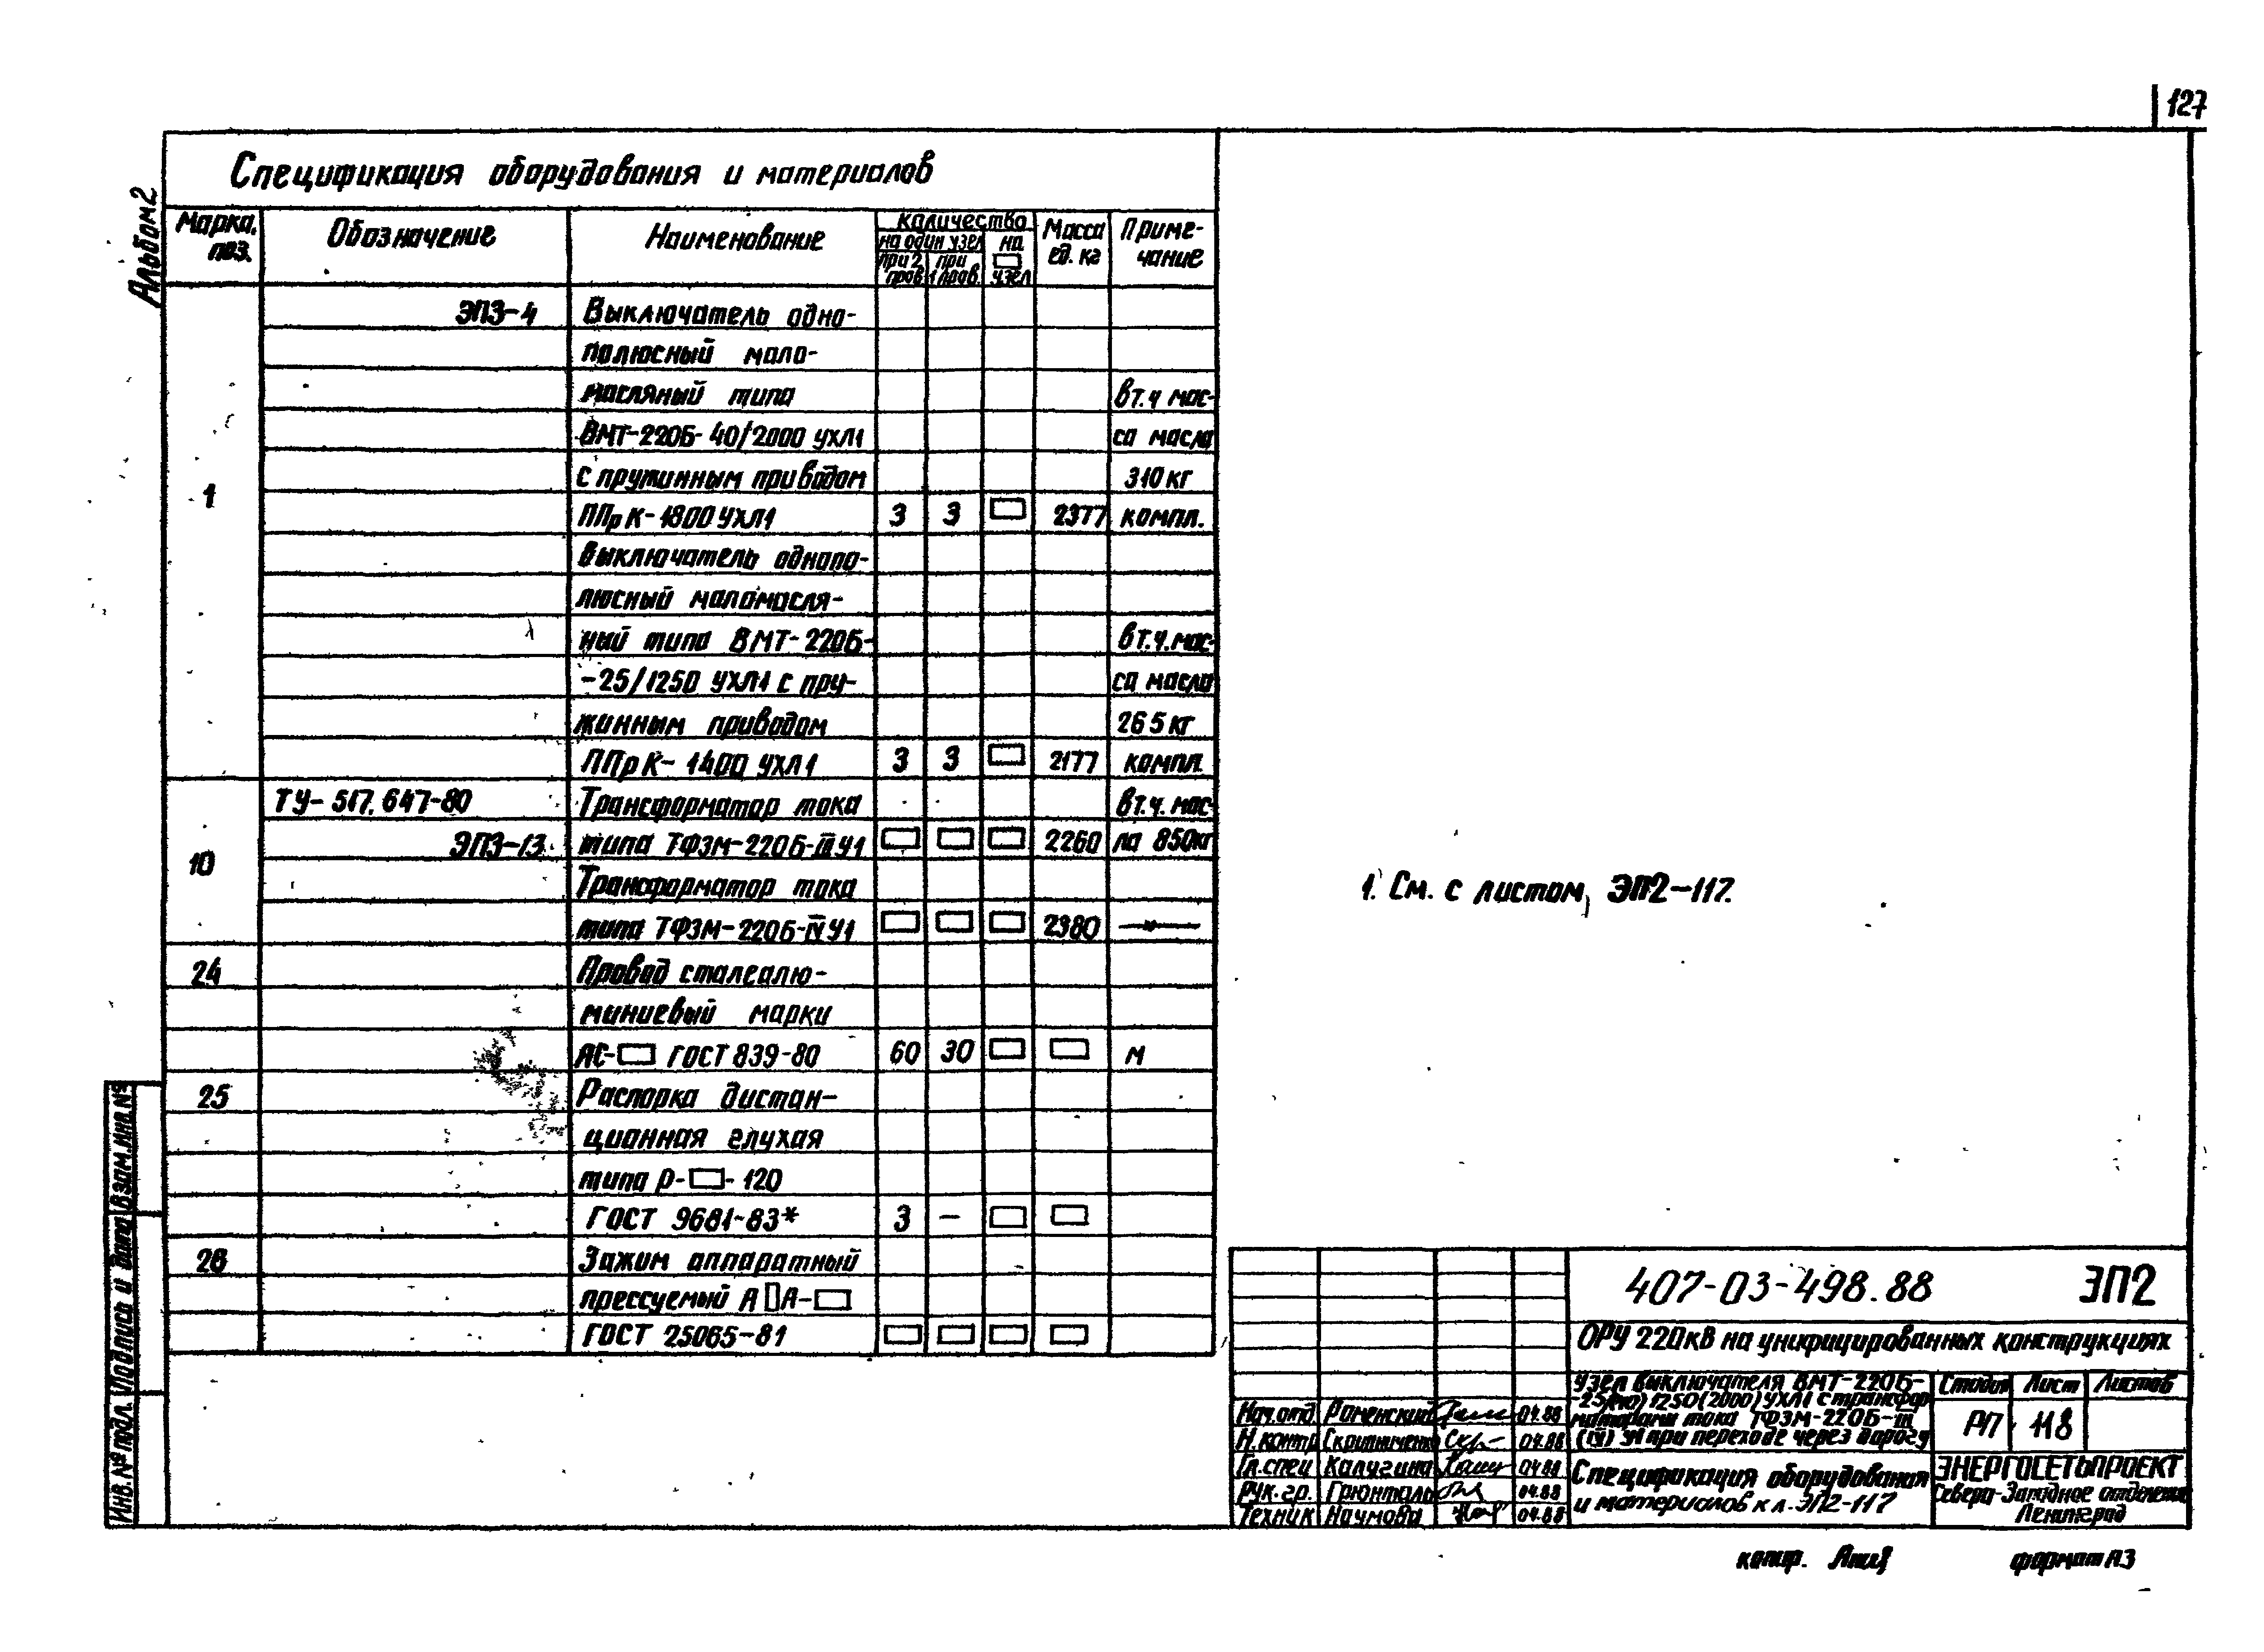 127
Альбом 2
Спецификация оборудования и материалов
Марка, поз.
Обозначение
Наименование
Количество
на один узел
при 2 пров.
при 1 пров.
на □ узел
Масса ед. кг
Примечание
1
ЭП3-4 Выключатель одно-
полюсный мало-
масляный типа в т.ч мас-
ВМТ-220Б-40/2000 УХЛ1 са масла
с пружинным приводом 310 кг
ППрК-1800 УХЛ1 3 3 □ 2377 компл.
Выключатель однопо-
люсный маломасля-
ный типа ВМТ-220Б- в т.ч. мас-
-25/1250 УХЛ1 с пру- са масла
жинным приводом 265 кг
ППрК-1400 УХЛ1 3 3 □ 2177 компл.
10
ТУ-517.647-80 Трансформатор тока в т.ч. мас-
ЭП3-13 типа ТФЗМ-220Б-III У1 □ □ □ 2260 ла 850кг
Трансформатор тока
типа ТФЗМ-220Б-IV У1 □ □ □ 2380 —"—
24 Провод сталеалю-
миниевый марки
АС-□ ГОСТ 839-80 60 30 □ □ м
25 Распорка дистан-
ционная глухая
типа Р-□-120
ГОСТ 9681-83* 3 - □ □
26 Зажим аппаратный
прессуемый А□А-□
ГОСТ 25065-81 □ □ □ □
1. См. с листом ЭП2-117.
407-03-498.88 ЭП2
ОРУ 220кВ на унифицированных конструкциях
Узел выключателя ВМТ-220Б-
25(40)/1250(2000) УХЛ1 с трансфор
маторами тока ТФЗМ-220Б-III
(IV) У1 при переходе через дорогу
Стадия Лист Листов
РП 118
Нач.отд. Роменский 04.88
Н.контр Скрипниченко 04.88
Гл.спец Калугина 04.88
Рук.гр. Грюнталь 04.88
Техник Наумова 04.88
Спецификация оборудования
и материалов к л. ЭП2-117
ЭНЕРГОСЕТЬПРОЕКТ
Северо-Западное отделение
Ленинград
копир.
формат А3
Инв. № подл. Подпись и дата Взам. инв. №